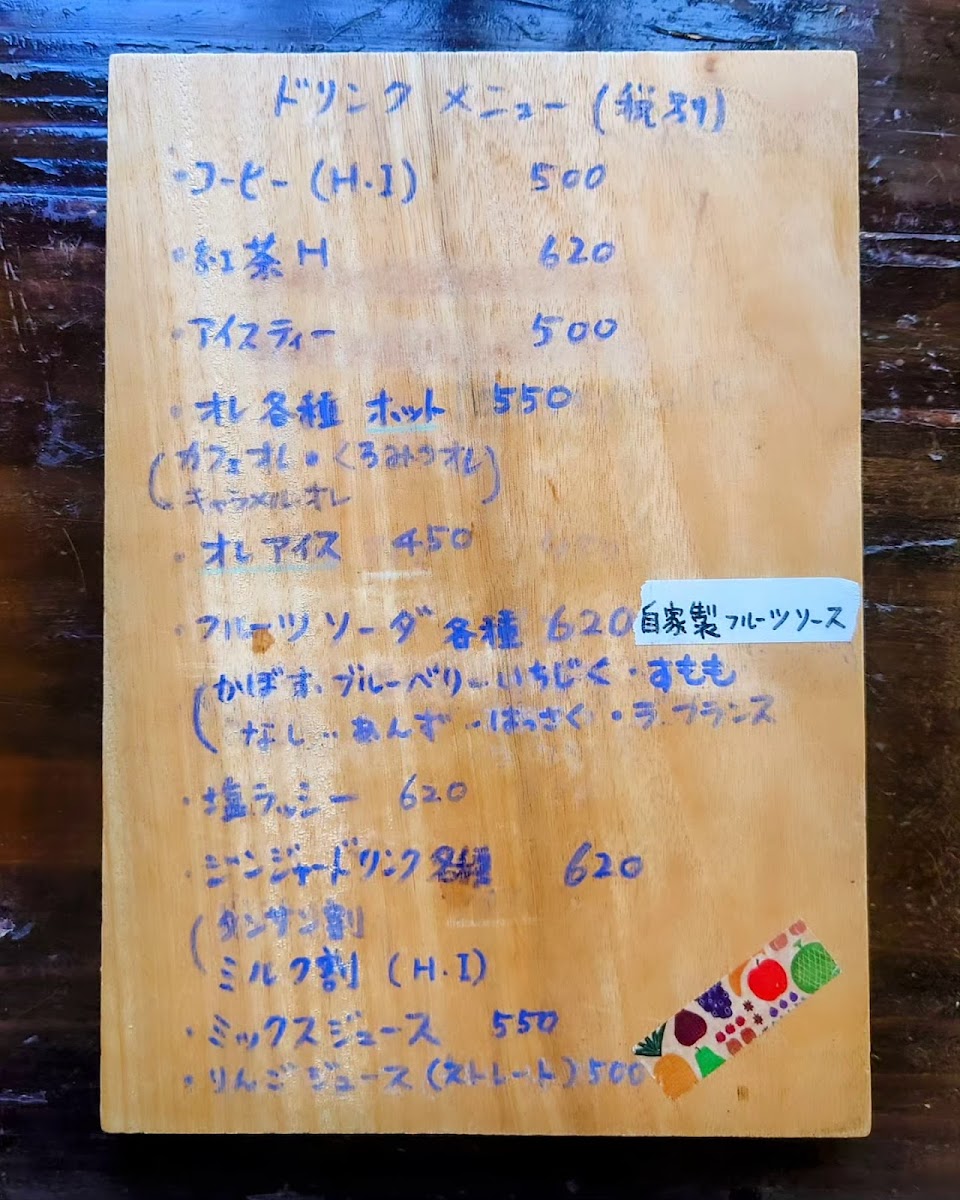 ドリンク メニュー (税別)
・コーヒー (H・I) 500
・紅茶 H 620
・アイスティー 500
・オレ各種 ホット 550
(カフェオレ・くろみつオレ)
キャラメルオレ
・オレ アイス 450
・フルーツソーダ 各種 620 自家製フルーツソース
(かぼす・ブルーベリー・いちじく・すもも
なし・あんず・はっさく・ラ・フランス
・塩ラッシー 620
・ジンジャードリンク各種 620
(タンサン割
ミルク割 (H・I)
・ミックスジュース 550
・りんごジュース (ストレート) 500